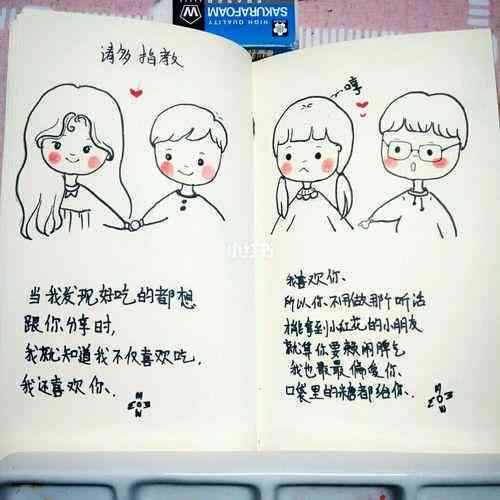 HIGH QUALITY
SAKURAFOAM
ERASER
W
请多指教
当我发现好吃的都想
跟你分享时,
我就知道我不仅喜欢吃,
我还喜欢你、
哼
我喜欢你、
所以你不用做那个听话
才能拿到小红花的小朋友
就算你耍赖闹脾气
我也最最偏爱你、
口袋里的糖都给你、
小红书